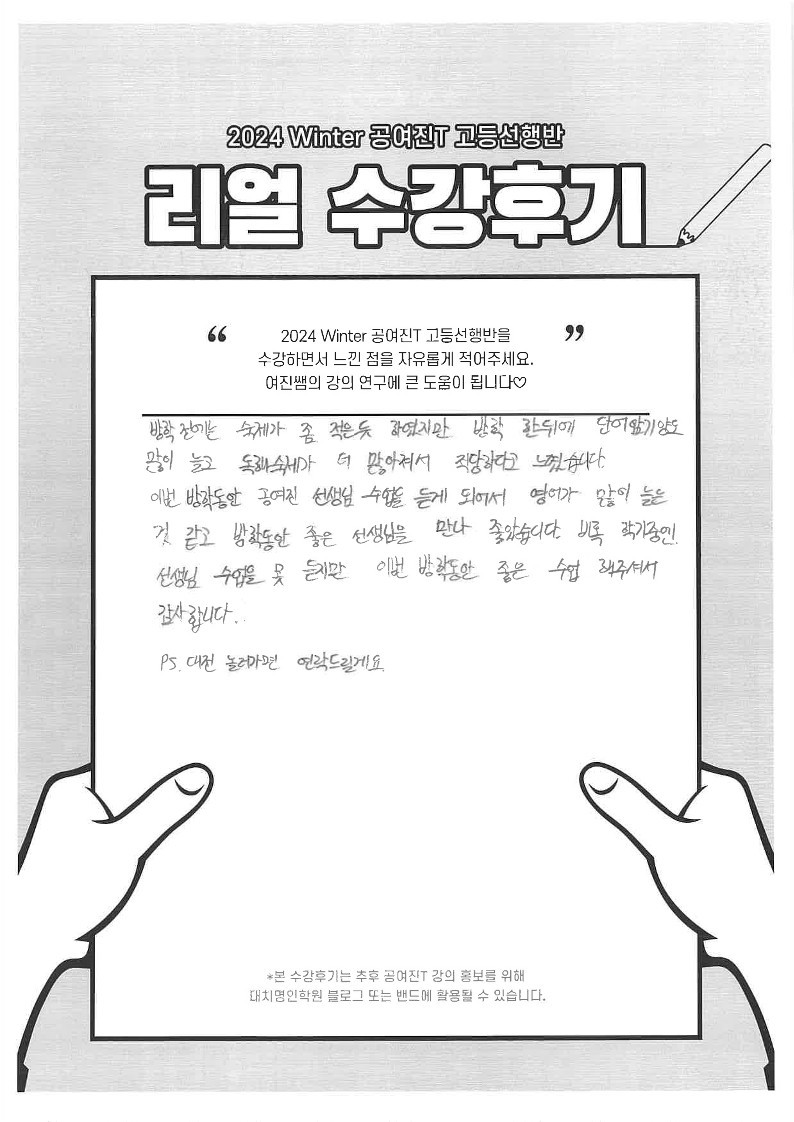 2024 Winter 공여진T 고등선행반
리얼 수강후기
“ 2024 Winter 공여진T 고등선행반을 ”
수강하면서 느낀 점을 자유롭게 적어주세요.
여진쌤의 강의 연구에 큰 도움이 됩니다♡
방학 전에는 숙제가 좀 적은듯 하였지만 방학 한뒤에 단어암기양도
많이 늘고 독해숙제가 더 많아져서 적당하다고 느꼈습니다.
이번 방학동안 공여진 선생님 수업을 듣게 되어서 영어가 많이 늘은
것 같고 방학동안 좋은 선생님을 만나 좋았습니다. 비록 학기중엔
선생님 수업을 못 듣지만 이번 방학동안 좋은 수업 해주셔서
감사합니다..
PS. 대전 놀러가면 연락드릴게요
*본 수강후기는 추후 공여진T 강의 홍보를 위해
대치명인학원 블로그 또는 밴드에 활용될 수 있습니다.